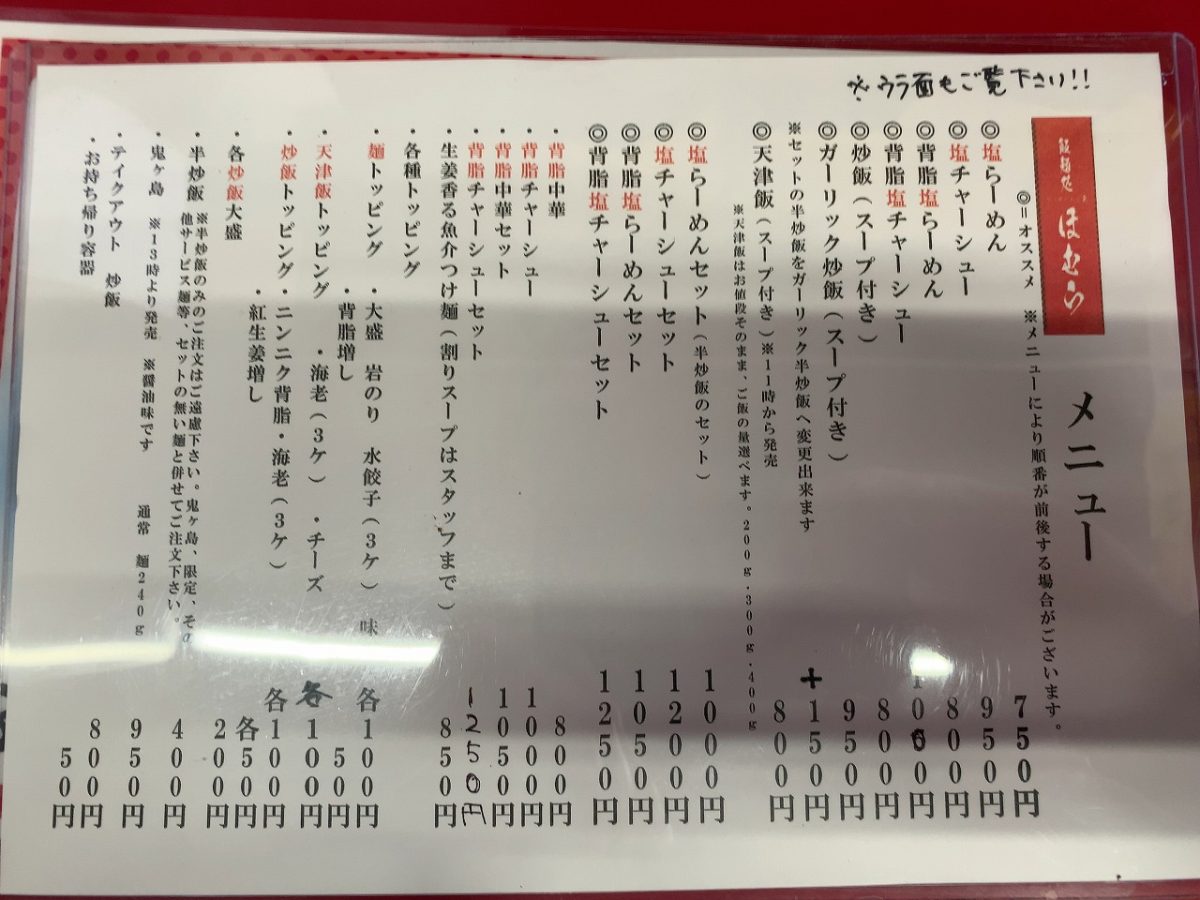 ※ウラ面もご覧下さい!!
ほむら
メニュー
◎=オススメ ※メニューにより順番が前後する場合がございます。
◎塩らーめん 750円
◎塩チャーシュー 950円
◎背脂塩らーめん 800円
◎背脂塩チャーシュー 1000円
◎炒飯(スープ付き) 800円
◎ガーリック炒飯(スープ付き) 950円
※セットの半炒飯をガーリック半炒飯へ変更出来ます +150円
◎天津飯(スープ付き)※11時から発売 800円
※天津飯はお値段そのまま、ご飯の量選べます。200g・300g・400g
◎塩らーめんセット(半炒飯のセット) 1000円
◎塩チャーシューセット 1200円
◎背脂塩らーめんセット 1050円
◎背脂塩チャーシューセット 1250円
・背脂中華 800円
・背脂チャーシュー 1000円
・背脂中華セット 1050円
・背脂チャーシューセット 1250円
・生姜香る魚介つけ麺(割りスープはスタッフまで) 850円
・各種トッピング
・麺トッピング ・大盛 岩のり 水餃子(3ケ) 味 各100円
・背脂増し 50円
・天津飯トッピング ・海老(3ケ) ・チーズ 各100円
・炒飯トッピング・ニンニク背脂・海老(3ケ) 各100円
・紅生姜増し 各50円
・各炒飯大盛 200円
・半炒飯 ※半炒飯のみのご注文はご遠慮下さい。鬼ヶ島、限定、その 400円
他サービス麺等、セットの無い麺と併せてご注文下さい。
・鬼ヶ島 ※13時より発売 ※醤油味です 通常 麺240g 950円
・テイクアウト 炒飯 800円
・お持ち帰り容器 50円